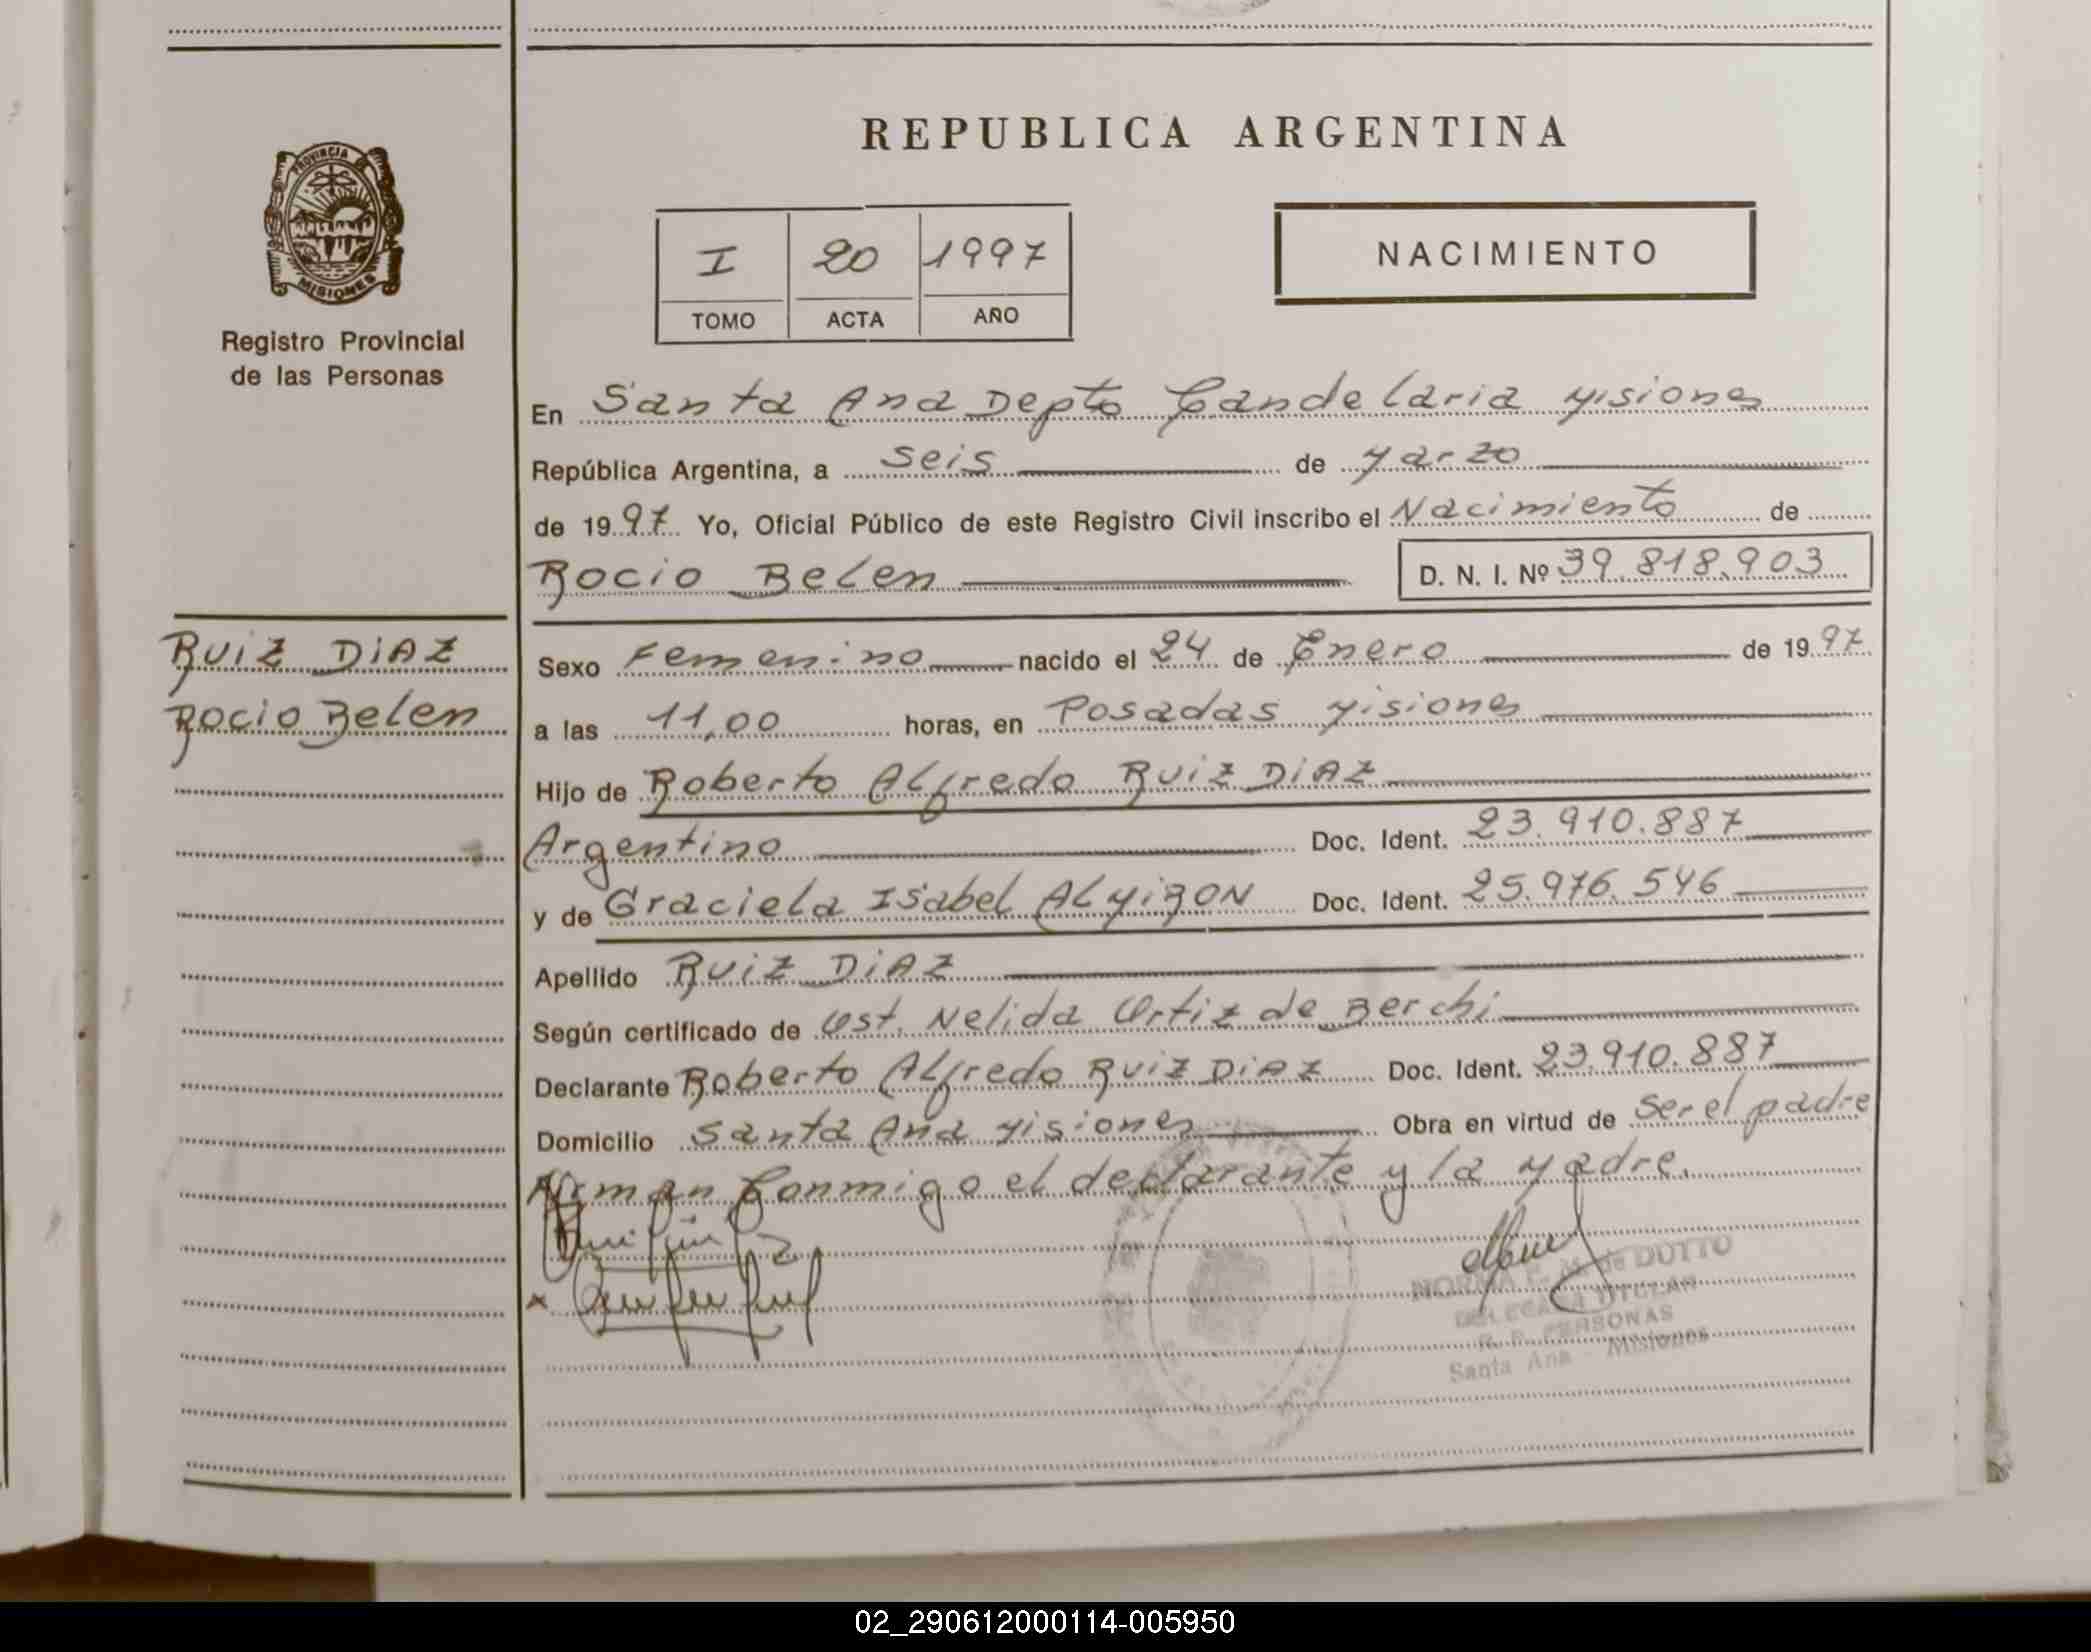 REPUBLICA ARGENTINA
PROVINCIA
MISIONES
Registro Provincial
de las Personas
I 20 1997
TOMO ACTA AÑO
NACIMIENTO
En Santa Ana Depto Candelaria Misiones
República Argentina, a seis de Marzo
de 1997 Yo, Oficial Público de este Registro Civil inscribo el Nacimiento de
Rocio Belen D. N. I. Nº 39.818.903
RUIZ DIAZ
Rocio Belen
Sexo Femenino nacido el 24 de Enero de 1997
a las 11,00 horas, en Posadas Misiones
Hijo de Roberto Alfredo RUIZ DIAZ
Argentino Doc. Ident. 23.910.887
y de Graciela Isabel ALMIRON Doc. Ident. 25.976.546
Apellido RUIZ DIAZ
Según certificado de Ost. Nelida Ortiz de Berchi
Declarante Roberto Alfredo RUIZ DIAZ Doc. Ident. 23.910.887
Domicilio Santa Ana Misiones Obra en virtud de ser el padre
Firman Conmigo el declarante y la Madre.
NORMA E. M. de DUTTO
DELEGADA TITULAR
R. P. PERSONAS
Santa Ana - Misiones
02_290612000114-005950